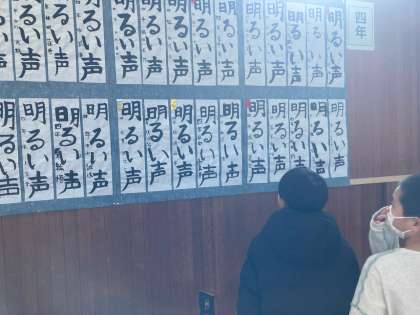 四年
明るい声
明るい声
明るい声
明るい声
明るい声
明るい声
明るい声
明るい声
明るい声
明るい声
るい声
るい声
るい声
い声
明るい声
明るい声
明るい声
明るい声
明るい声
明るい声
明るい声
明るい声
明るい声
明るい声
明るい声
明るい声
明るい声
明るい声